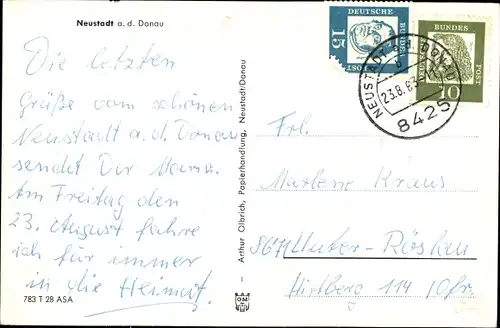 Neustadt a. d. Donau
Die letzten
Grüße vom schönen
Neustadt a. d. Donau
sendet Dir Mama.
Am Freitag den
23. August fahre
ich für immer
in die Heimat.
783 T 28 ASA
Arthur Olbrich, Papierhandlung, Neustadt/Donau
DEUTSCHE
BUNDESPOST
15
DEUTSCHE
BUNDESPOST
10
NEUSTADT a. d. DONAU
23.8.63
8425
Frl.
Marlene Kraus
8671 Unter-Röslau
Hirtberg 114 Ofr.